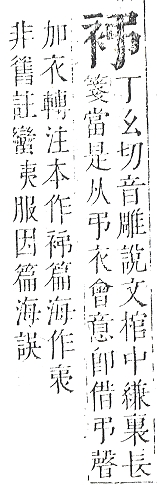 丁幺切音雕說文棺中縑裏長
箋當是从弔衣會意即借弔聲
加衣轉注本作篇海作
非舊註蠻夷服因篇海誤